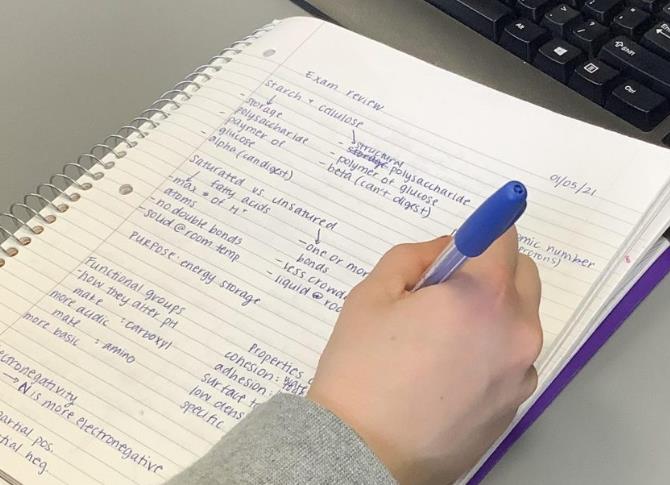 Exam review
01/05/21
starch + cellulose
- storage
polysaccharide
- paymer of
glucose
- alpha (can digest)
structural
storage polysaccharide
- polymer of glucose
- beta (can't digest)
saturated vs. unsatured
fatty acids
- max # of H+
atoms
- no double bonds
- solid @ room temp
- one or mor
bonds
- less crowd
- liquid @ roo
PURPOSE: energy storage
omic number
protons)
Functional groups
- how they alter pH
make
more acidic : carboxyl
make
more basic : amino
Properties
cohesion: wate
adhesion:
surface t
low dens
specific
ectronegativity
→ N is more electronegative
partial pos.
tial neg.
Shift
Ctrl